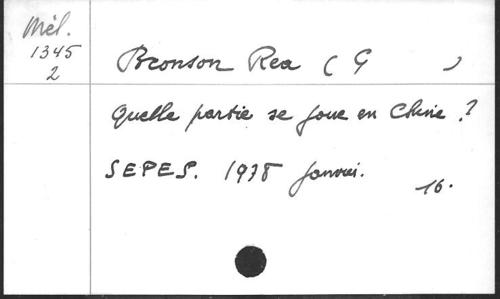 Mél.
1345
2
Bronson Rea ( G )
Quelle partie se joue en Chine ?
SEPES. 1938 Janvier.
16.